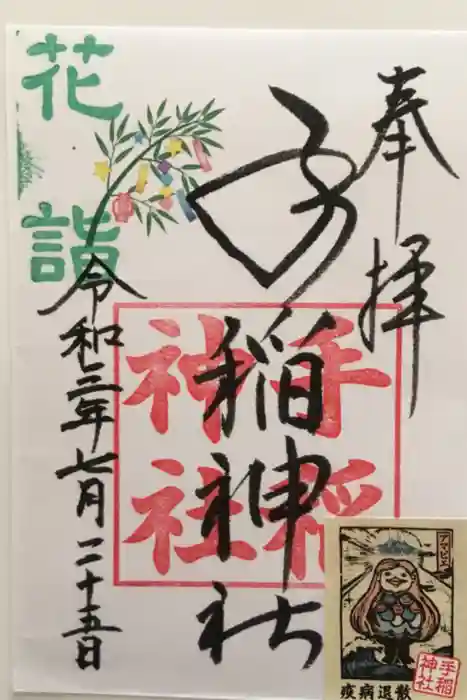 奉拝
手稲神社
手稲
神社
花詣
令和三年七月二十五日
アマビエ
手稲
神社
疫病退散